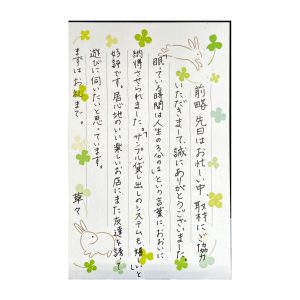 前略 先日はお忙しい中 取材にご協力
いただきまして、誠にありがとうございました。
「眠っている時間は人生の3分の1」という言葉におおいに
納得させられました。「サンプル貸し出しのシステムも嬉しい」と
好評です。居心地のいい楽しいお店にまた友達を誘って
遊びに伺いたいと思っています。
まずはお礼まで。
草々